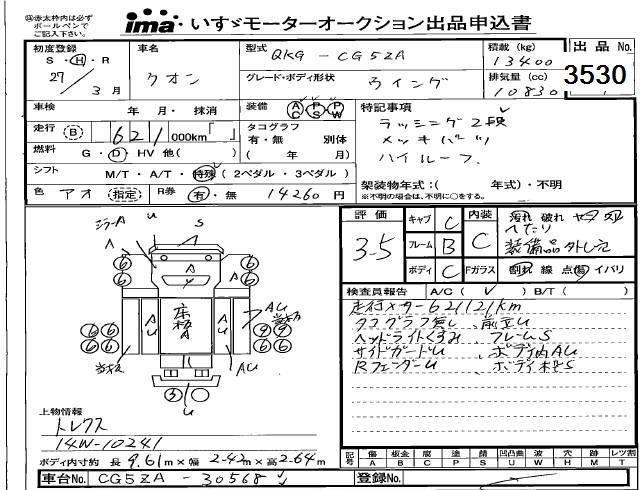 ㊟赤太枠内は必ず
ボールペンで
ご記入下さい。
ima いすゞモーターオークション出品申込書
初度登録
S・H・R
27/3月
車名
クオン
型式
QKG-CG5ZA
積載(kg)
13400
出品No.
3530
グレード・ボディ形状
ウイング
排気量(cc)
10830
車検 年 月・抹消
装備 AC PS PW
特記事項
ラッシング2段
メッキパーツ
ハイルーフ
走行 B 621,000km「 」
タコグラフ
有・無 別体
( 年 月)
燃料 G・D・HV 他( )
シフト M/T・A/T・特殊(2ペダル・3ペダル)
架装物年式:( 年式)・不明
※不明の場合は、不明に○をする。
色 アオ(指定) R券 有・無 14260円
評価
3-5
キャブ C
フレーム B
ボディ C
内装 C
汚れ 破れ ヤケ 穴
へたり
装備品外し穴
Fガラス 割れ 線 点傷 イバリ
検査員報告 A/C( ✓ ) B/T( )
走行メーター621121km
タコグラフ無し、前立U
ヘッドライトくもり、フレームS
サイドガードU、ボディ内AU
RフェンダーU、ボディ枠S
ミラーA
U
S
A
A
A
6
6
6
6
AU
床板A
AU
AU
6
6
6
6
9
9
6
6
AU
3
U
上物情報
トレクス
14W-10241
ボディ内寸約 長 9.61m×幅 2.42m×高 2.64m
記号 傷 A 板金 B 腐 C 塗 P 錆 S 凹凸曲 U 波 W 穴 H 跡 M レツ割 T
車台No. CG5ZA-30568
登録No.